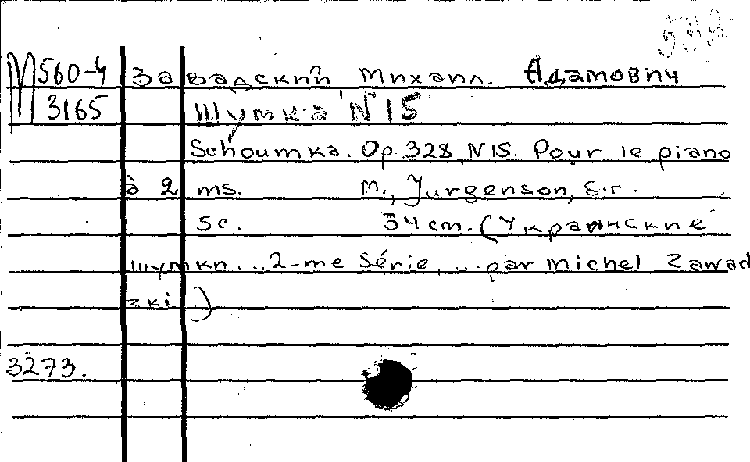 М560-4 Завадский Михаил. Адамович
3165 Шумка N 15
Schoumka. Op. 328, N15. Pour le piano
à 2 ms. M., Jurgenson, s.г.
5с. 34cm. (Украинские
шумки...2-me Série,...par Michel Zawad
zki)
3273.